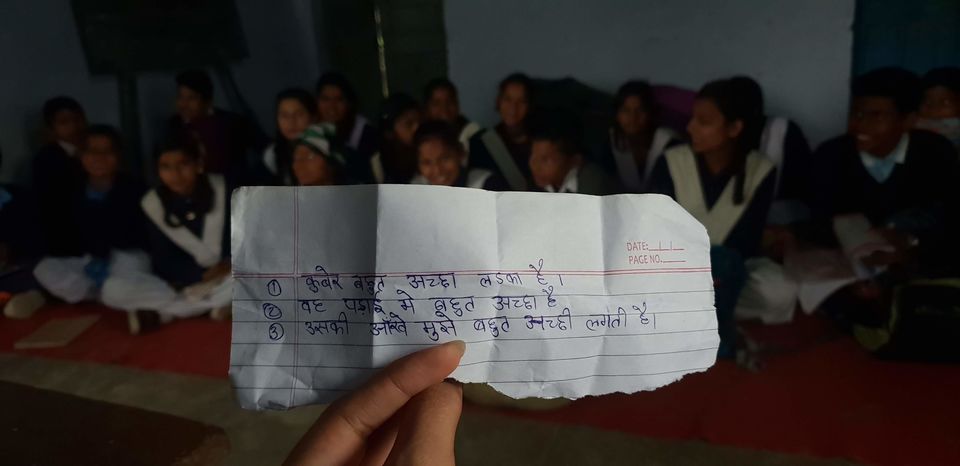 DATE:__/__/__
PAGE NO.____
① कुबेर बहुत अच्छा लडका है।
② वह पढ़ाई मे बहुत अच्छा है
③ उसकी आँखे मुझे बहुत अच्छी लगती है।